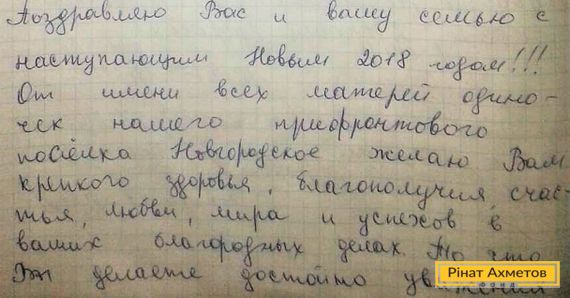 Поздравляю Вас и вашу семью с
наступающим Новым 2018 годом!!!
От имени всех матерей одино-
чек нашего прифронтового
посёлка Новгородское желаю Вам
крепкого здоровья, благополучия, счас-
тья, любви, мира и успехов в
ваших благородных делах. То что
Вы делаете достойно
Рінат Ахметов
ФОНД